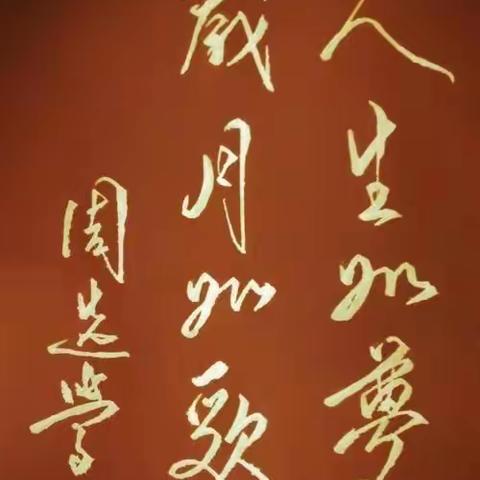 人生如夢
歲月如歌
周选学